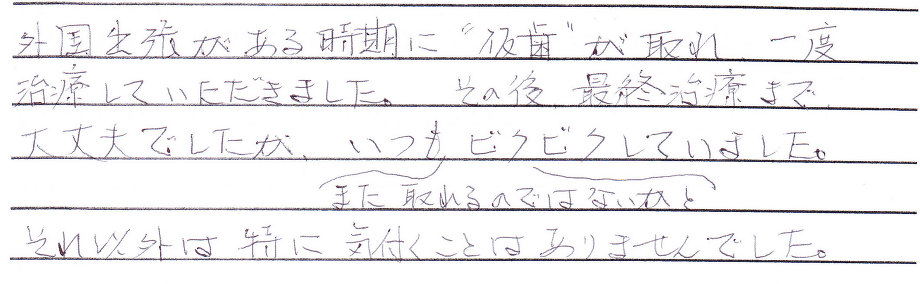 外国出張がある時期に“仮歯”が取れ、一度
治療していただきました。その後、最終治療まで、
大丈夫でしたが、いつもビクビクしていました。
また取れるのではないかと
それ以外は特に気付くことはありませんでした。